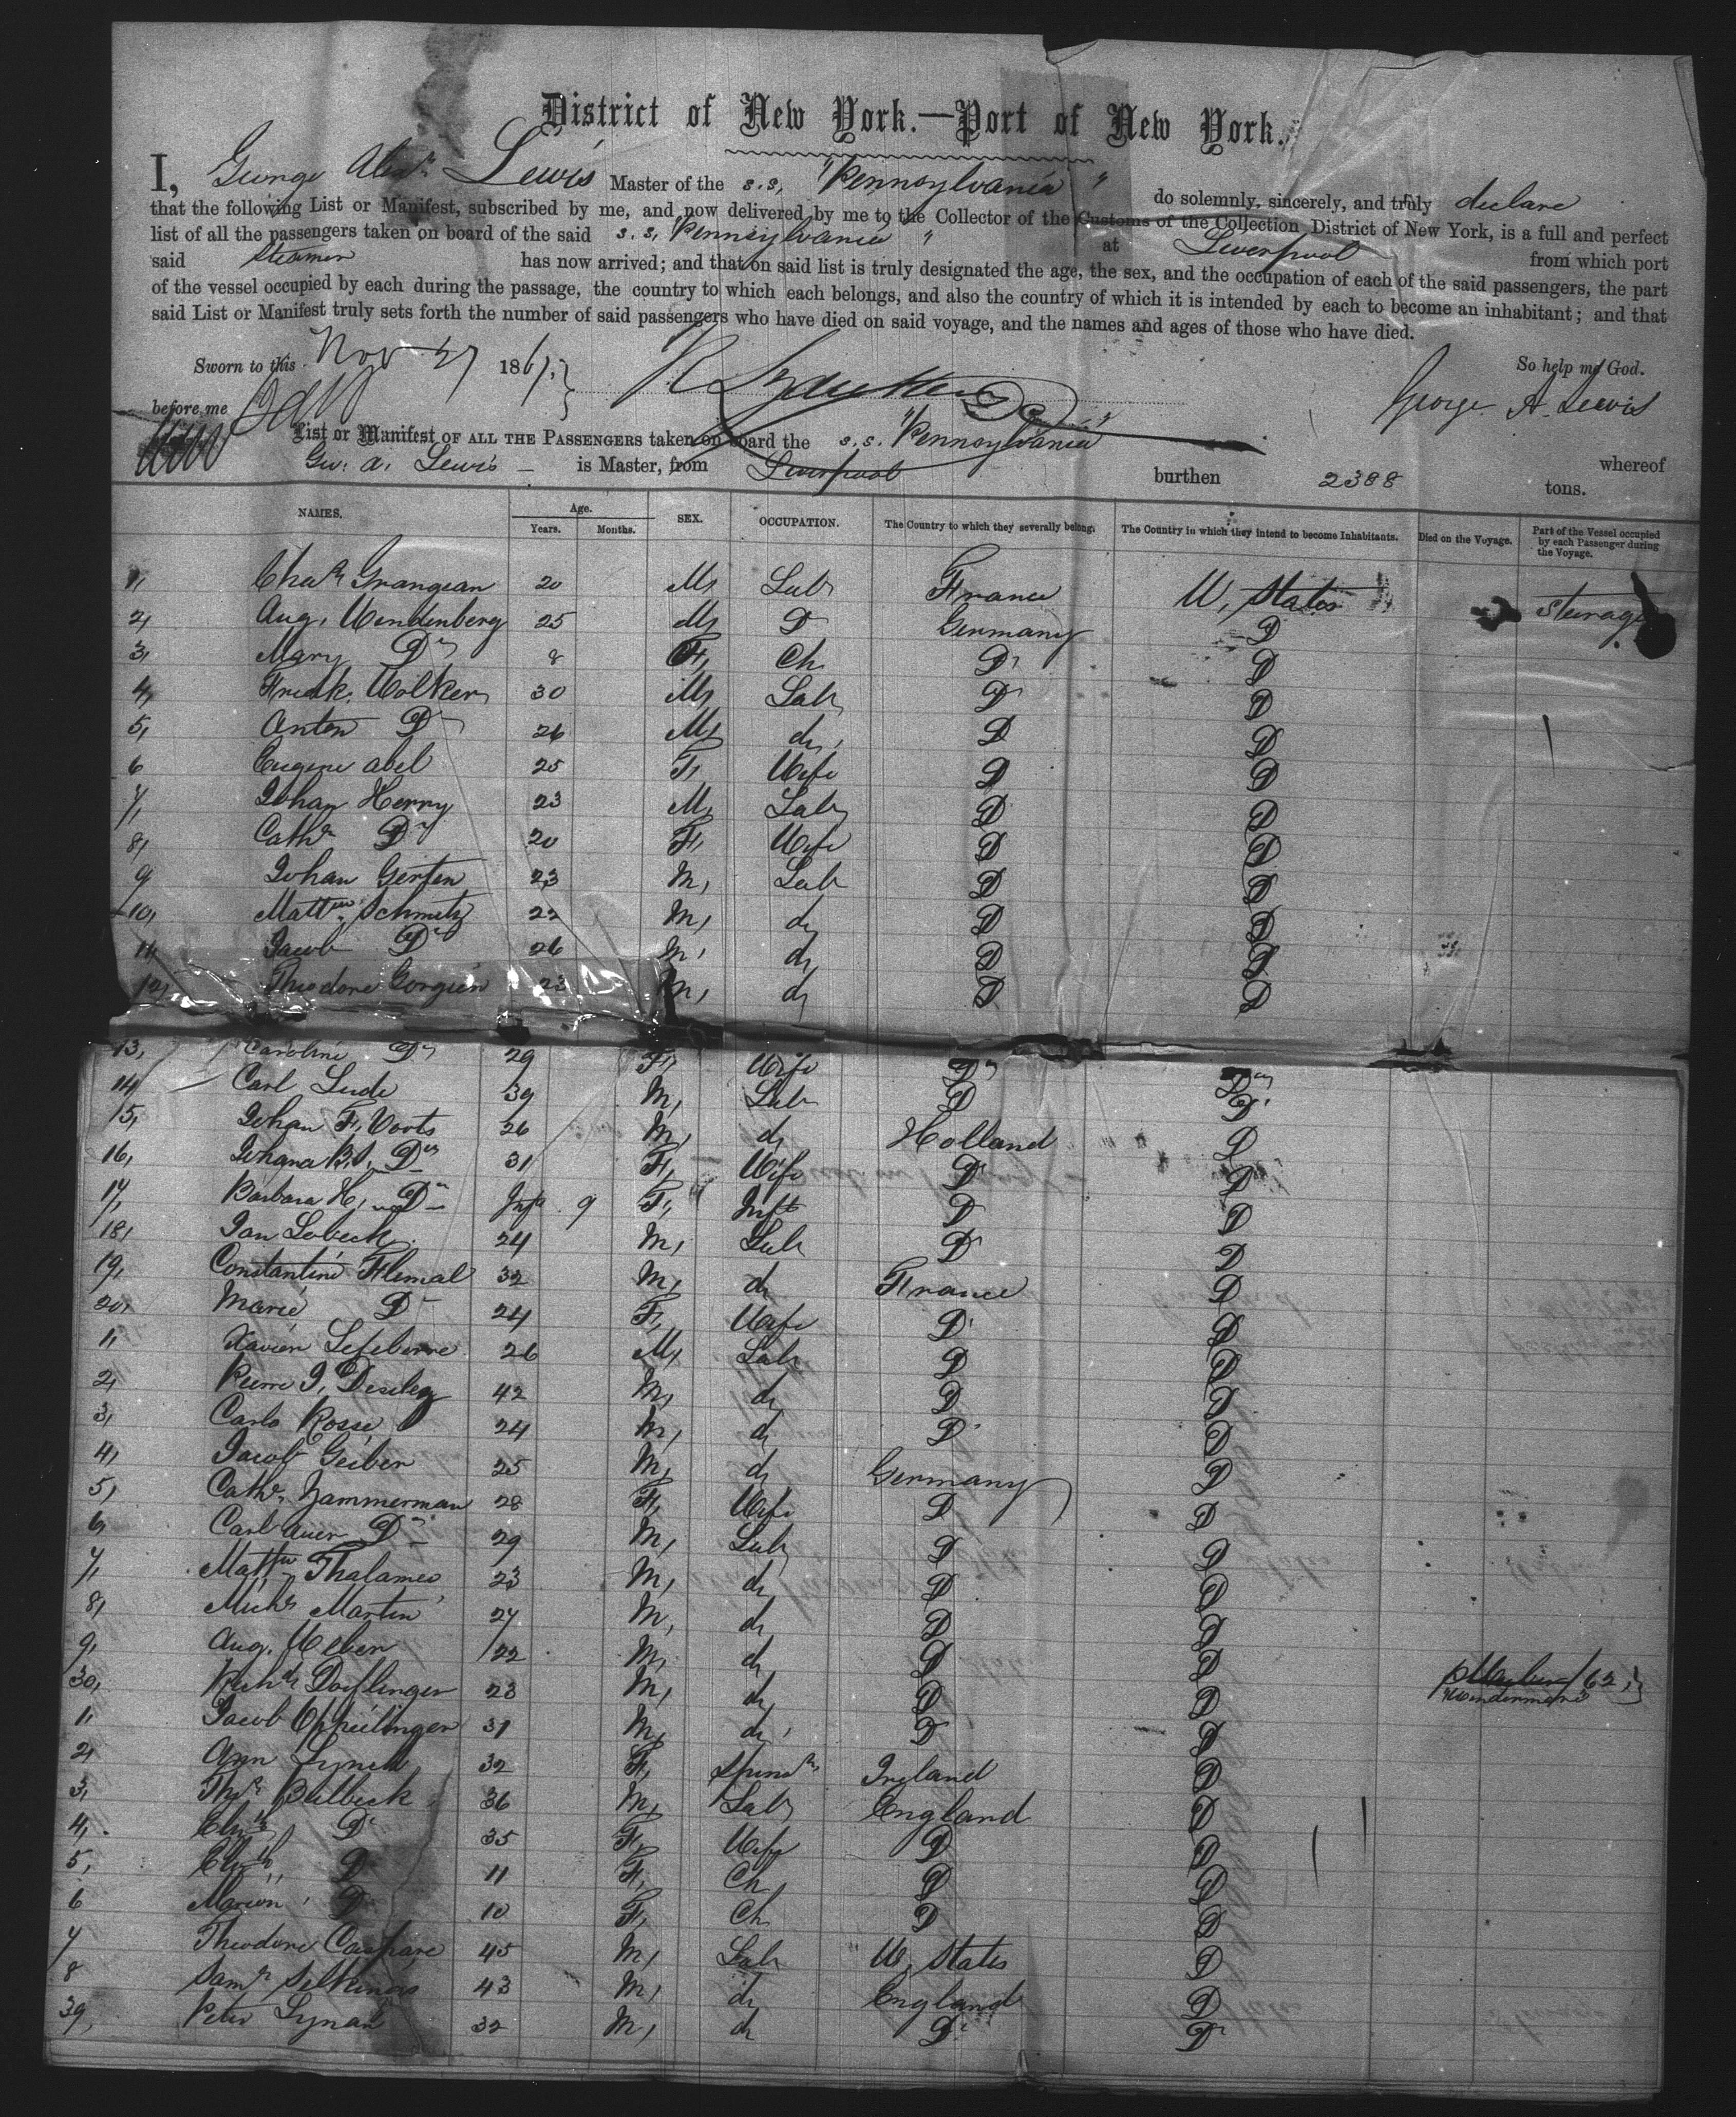 District of New York.—Port of New York.
I, George Alexr Lewis Master of the s.s. "Pennsylvania" do solemnly, sincerely, and truly declare
that the following List or Manifest, subscribed by me, and now delivered by me to the Collector of the Customs of the Collection District of New York, is a full and perfect
list of all the passengers taken on board of the said s.s. Pennsylvania " at Liverpool from which port
said Steamer has now arrived; and that on said list is truly designated the age, the sex, and the occupation of each of the said passengers, the part
of the vessel occupied by each during the passage, the country to which each belongs, and also the country of which it is intended by each to become an inhabitant; and that
said List or Manifest truly sets forth the number of said passengers who have died on said voyage, and the names and ages of those who have died.
Sworn to this Nov 27 1867. So help me God.
before me George A. Lewis
List or Manifest OF ALL THE PASSENGERS taken on board the s.s. "Pennsylvania" whereof
Geo. A. Lewis — is Master, from Liverpool burthen 2388 tons.
NAMES. Age. Years. Months. SEX. OCCUPATION. The Country to which they severally belong. The Country in which they intend to become Inhabitants. Died on the Voyage. Part of the Vessel occupied by each Passenger during the Voyage.
1, Chas Grangean 20 M, Lab France U, States Steerage
2, Aug. Wendenberg 25 M, D Germany D
3, Mary Do 8 F, Ch D D
4, Fredk. Wolker 30 M, Lab D D
5, Anton Do 26 M, do D D
6 Eugene Abel 25 F, Wife D D
7, Johan Henny 23 M, Lab D D
8, Cathe Do 20 F, Wife D D
9 Johan Gerten 23 M, Lab D D
10, Mattw Schmitz 22 M, do D D
11 Jacob Do 26 M, do D D
12, Theodore Gorgien 23 M, do D D
13, Caroline Do 29 F, Wife Do Do
14, Carl Lude 39 M, Lab D D
15, Johan F. Voots 26 M, do Holland D
16, Johana Do 31 F, Wife D D
17, Barbara H, Do Inft 9 F, Inft D D
18, Jan Lobeck 24 M, Lab D D
19, Constantine Flemal 32 M, do France D
20, Marie, Do 24 F, Wife D D
1, Xavier Lefebvre 26 M, Lab D D
2, Pierre J, 42 M, do D D
3, Carlo Rosse 24 M, do D D
4, Jacob Geiber 25 M, do Germany D
5, Cathe Zammerman 28 F, Wife D D
6, Carl Auer Do 29 M, Lab D D
7, Mattw Thalames 23 M, do D D
8, Michl Martin 27 M, do D D
9, Aug. Weber 22 M, do D D
30, Richd Dorflinger 23 M, do D D /62
1, Jacob 31 M, do D D
2, Ann Lynch 32 F, Spinsr Ireland D
3, Thos Bulbeck 36 M, Lab England D
4, Elizth Do 35 F, Wife D D
5, Elizth Do 11 F, Ch D D
6 Marion Do 10 F, Ch D D
7 Theodore Caspare 45 M, Lab U, States D
8 Saml 43 M, do England D
39, Peter Lynan 32 M, do Do Do